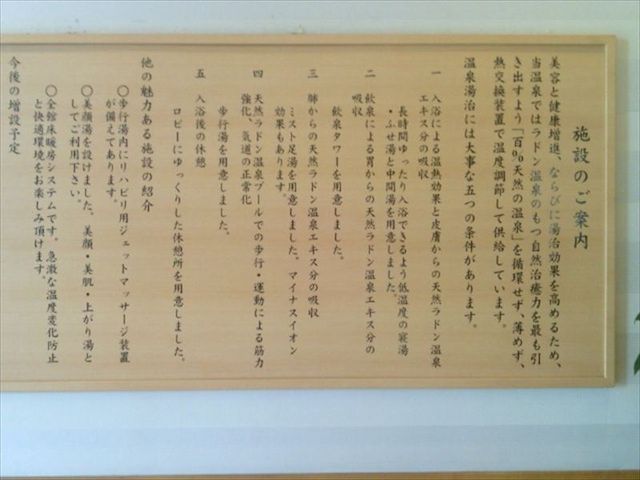 施設のご案内
美容と健康増進、ならびに湯治効果を高めるため、
当温泉ではラドン温泉のもつ自然治癒力を最も引
き出すよう「百%天然の温泉」を循環せず、薄めず、
熱交換装置で温度調節して供給しています。
温泉湯治には大事な五つの条件があります。
一 入浴による温熱効果と皮膚からの天然ラドン温泉
エキス分の吸収
長時間ゆったり入浴できるよう低温度の寝湯
・ふせ湯と中間湯を用意しました。
二 飲泉による胃からの天然ラドン温泉エキス分の
吸収
飲泉タワーを用意しました。
三 肺からの天然ラドン温泉エキス分の吸収
ミスト足湯を用意しました。マイナスイオン
効果もあります。
四 天然ラドン温泉プールでの歩行・運動による筋力
強化、気道の正常化
歩行湯を用意しました。
五 入浴後の休憩
ロビーにゆっくりした休憩所を用意しました。
他の魅力ある施設の紹介
○歩行湯内にリハビリ用ジェットマッサージ装置
が備えてあります。
○美顔湯を設けました。美顔・美肌・上がり湯と
してご利用下さい。
○全館床暖房システムです。急激な温度変化防止
と快適環境をお楽しみ頂けます。
今後の増設予定